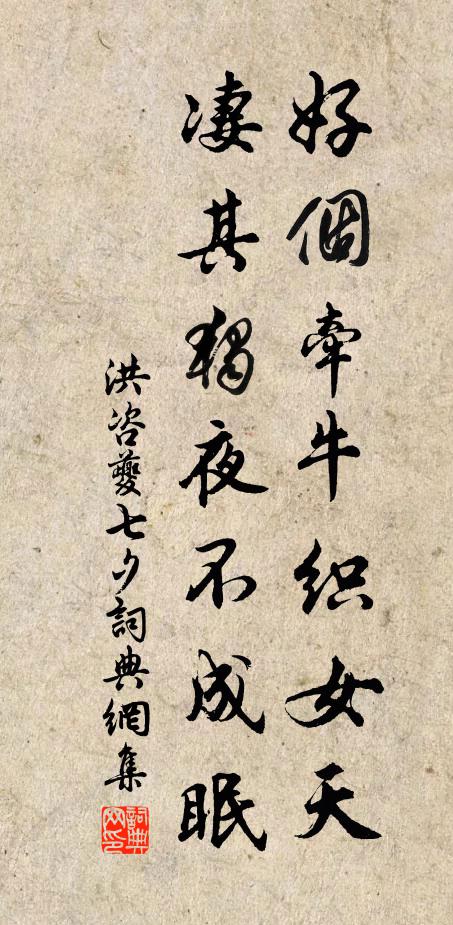 好個牽牛織女天
凄其獨夜不成眠
洪咨夔七夕詞典網集
詞典網印